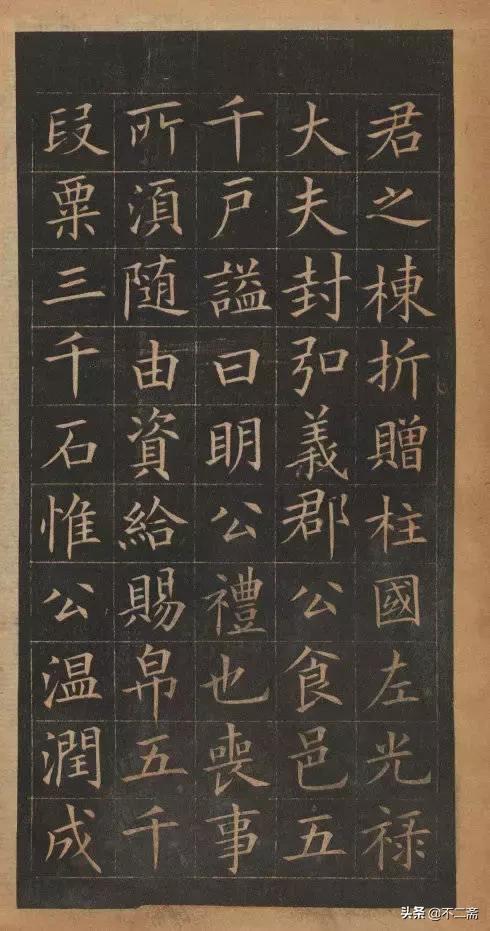 君之棟折贈柱國左光禄
大夫封弘義郡公食邑五
千戸謚曰明公禮也喪事
所湏隨由資給賜帛五千
段粟三千石惟公温潤成
头条 @不二斋